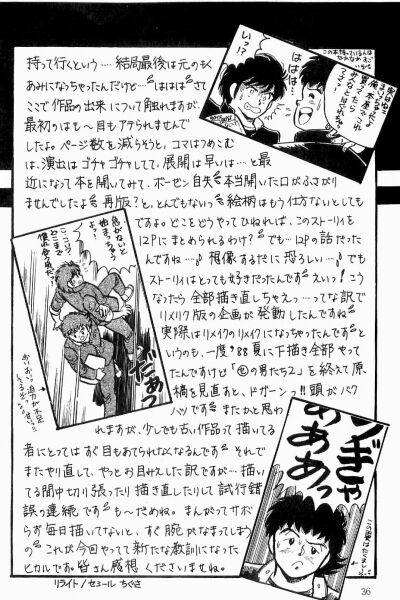 持って行くという…。結局最後は元のもく
あみになっちゃったんだけど…〃ははは〃さて
ここで作品の出来について触れますが、
最初のはも〜目もアテられませんで
したよ。ページ数を減らそうと、コマはつめこむ
は、演出はゴチャゴチャしてて、展開は早いは…と最
近になって本を開いてみて、ボーゼン自失〃本当開いた口がふさがり
ませんでしたよ〃再版?と、とんでもないっ〃絵柄はもう仕方ないとしても
ですよ。どこをどうやってひねれば、このストーリィを
12Pにまとめられるわけ?〃でも…12Pの話だった
んですね…♪想像するだに恐ろしい…♪でも
ストーリィはとっても好きだったんです〃えいっ!こう
なったら全部描き直しちゃえっ…ってな訳で
リメイク版の企画が発動したんですね〃
実際はリメイクのリメイクになっちゃったんです〃と
いうのも、一度'88夏に下描き全部やって
たんですけど「の男たち2」を終えて原
稿を見直すと、ドガーンっ!!頭がバク
ハツです〃またかと思わ
れますが、少しでも古い作品って描いてる
者にとってはすぐ目もあてられなくなるんです〃それで
またやり直して、やっとお目みえした訳ですが…描い
てる間中切り張ったり描き直したりして試行錯
誤の連続です〃も〜だめね。まんがってサボ
らず毎日描いてないと、すぐ腕がなまってしまう
の〃これが今回やってて新たな教訓になった
ヒカルです。皆さん感想くださいませね。
リライト/セミュール ちぐさ
36
いっ!?
ははは…
この本持っている人は
急がないと
始まっちゃう
よっ?
だあっ
ンぎゃ
あああっ